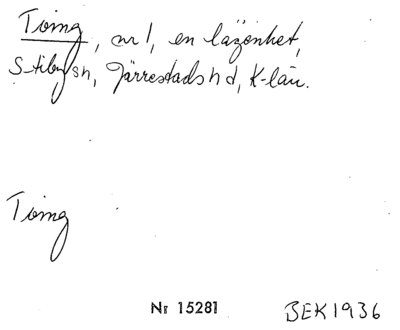 Tving, nr 1, en lägenhet,
Stiby sn, Järrestads hd, K-län.
Tving
Nr 15281
BEK 1936